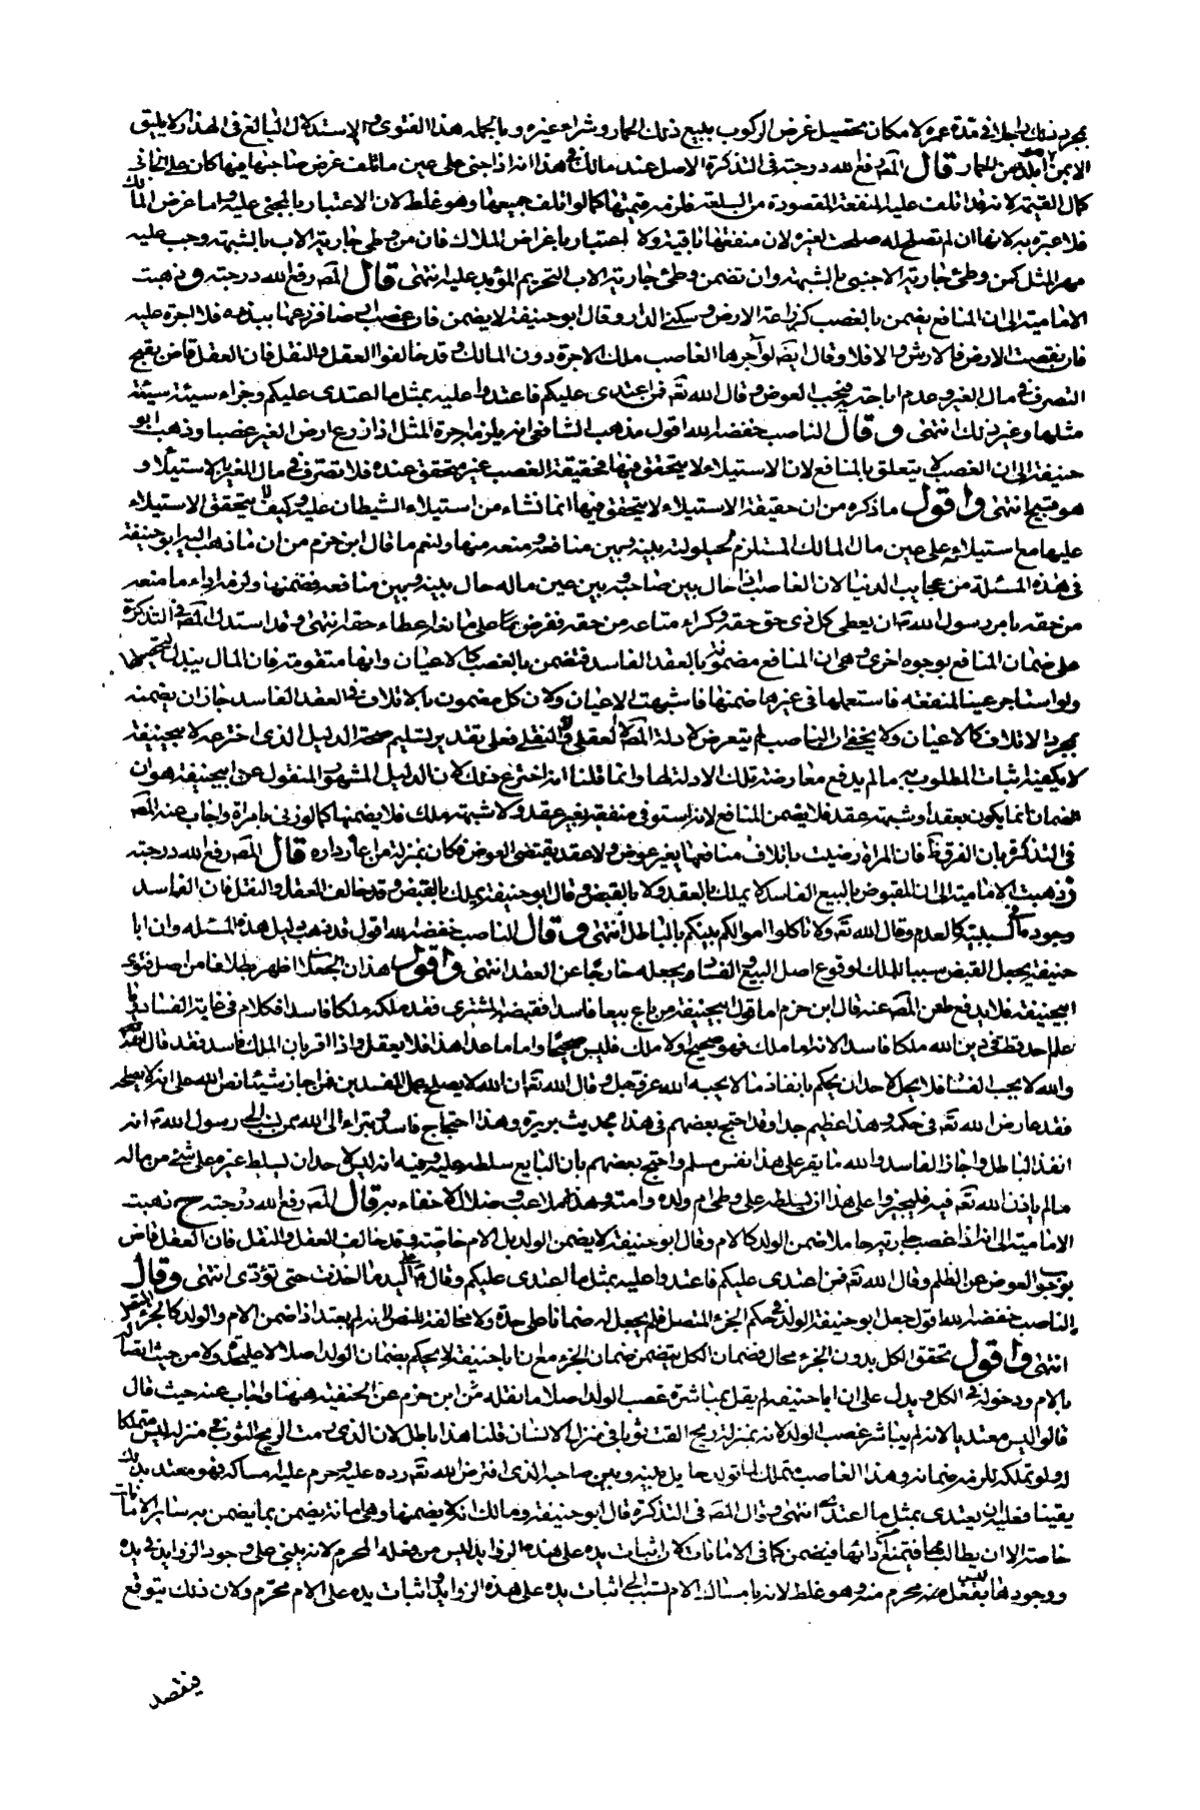 بمجرد ذلك راجلا في مدة عمره لامكان تحصيل غرض الركوب ببيع ذلك الحمار وشراء غيره وبالجملة هذا الفتوى والاستدلال البالغ في الهذار لا يليق
الا بمن ابلد من الحمار قال المصـ رفع الله درجته في التذكرة الاصل عند مالك في هذا انه اذا جنى على عين ما تلف غرض صاحبها فيها كان على الجاني
كمال القيمة لانه قد اتلف عليه المنفعة المقصودة من السلعة فلزمه قيمتها كما لو اتلف جميعها وهو غلط لان الاعتبار بالمجني عليه واما غرض المالك
فلا عبرة به لانها ان لم تصلح له صلحت لغيره لان منفعتها باقية ولا اعتبار باغراض الملاك فان من وطى جارية الاب بالشبهة وجب عليه
مهر المثل كمن وطئ جارية الاجنبي بالشبهة وان تضمن وطئ جارية الاب التحريم المؤبد عليه انتهى قال المصـ رفع الله درجته و ذهبت
الامامية الى ان المنافع يضمن بالغصب كزراعة الارض وسكنى الدار وقال ابو حنيفة لا يضمن فان غصب ارضا فزرعها ببذره فلا اجرة عليه
فان نقصت الارض فالارش والا فلا وقال ايضـ لو آجرها الغاصب ملك الاجرة دون المالك وقد خالفوا العقل والنقل فان العقل قاض بقبح
التصرف في مال الغير وعدم اباحته فيجب العوض وقال الله تعـ فمن اعتدى عليكم فاعتدوا عليه بمثل ما اعتدى عليكم وجزاء سيئة سيئة
مثلها وغير ذلك انتهى وقال الناصب خفضه الله اقول مذهب الشافعي انه يلزم اجرة المثل اذا زرع ارض الغير غصبا وذهب ابو
حنيفة الى ان الغصب لا يتعلق بالمنافع لان الاستيلاء لا يتحقق فيها فحقيقة الغصب غير متحقق عنده فلا تصرف في مال الغير بالاستيلاء و
هو قبيح انتهى واقول ما ذكره من ان حقيقة الاستيلاء لا يتحقق فيها انما نشاء من استيلاء الشيطان عليه وكيف لا يتحقق الاستيلاء
عليها مع استيلائه على عين مال المالك المستلزم لحيلولته بينه وبين منافعه ومنعه منها ولنعم ما قال ابن حزم من ان ما ذهب اليه ابو حنيفة
في هذه المسئلة من عجايب الدنيا لان الغاصب اذا حال بين صاحبه وبين عين ماله حال بينه وبين منافعه فضمنها ولزمه اداء ما منعه
من حقه بامر رسول الله صـ ان يعطى كل ذي حق حقه وكراء متاعه من حقه ففرض على مانعه اعطاء حقه انتهى وقد استدل المصـ في التذكرة
على ضمان المنافع بوجوه اخرى وهي ان المنافع مضمونة بالعقد الفاسد فتضمن بالغصب كالاعيان وانها متقومة فان المال يبذل لتحصيلها
ولو استاجر عينا لمنفعة فاستعملها في غيرها ضمنها فاشبهت الاعيان ولان كل مضمون بالاتلاف في العقد الفاسد جاز ان يضمنه
بمجرد الاتلاف كالاعيان ولا يخفى ان الناصب لم يتعرض لادلة المصـ لا العقلي ولا النقلي فعلى تقدير تسليم صحة الدليل الذي اخترعه لابيحنيفة
لا يكفيه اثبات المطلوب به ما لم يدفع معارضة تلك الادلة لها وانما قلنا انه اخترع ذلك لان الدليل المشهور المنقول عن ابيحنيفة هو ان
الضمان انما يكون بعقد او شبهة عقد فلا يضمن المنافع لانه استوفى منفعة بغير عقد ولا شبهة ملك فلا يضمنها كما لو زنى بامراة واجاب عنه المصـ
في التذكرة بان الفرق فان المراة رضيت باتلاف منافعها بغير عوض ولا عقد يقتضى العوض فكان بمنزلة من اعار داره قال المصـ رفع الله درجته
ز ذهبت الامامية الى ان المقبوض بالبيع الفاسد لا يملك بالعقد ولا بالقبض وقال ابو حنيفة يملك بالقبض وقد خالف العقل والنقل فان الفاسد
وجوده في السببية كالعدم وقال الله تعـ ولا تاكلوا اموالكم بينكم بالباطل انتهى وقال الناصب خفضه الله اقول قد ذهب دليل هذه المسئله وان ابا
حنيفة يجعل القبض سببا للملك لوقوع اصل البيع والفساد يجعله خارجا عن العقد انتهى واقول هذان الجعلان اظهر بطلانا من اصل فتوى
ابيحنيفة فلا يدفع طعن المصـ عنه قال ابن حزم اما قول ابيحنيفة من باع بيعا فاسدا فقبضه المشترى فقد ملكه ملكا فاسدا فكلام في غاية الفساد وما
علم احد قط في دين الله ملكا فاسدا لانه اما ملك فهو صحيح او لا ملك فليس صحيحا واما ما عدا هذا فلا يعقل واذا اقر بان الملك فاسد فقد قال الله تعـ
والله لا يحب الفساد فلا يحل لاحد ان يحكم بانفاذ ما لا يحبه الله عز وجل وقال الله تعـ ان الله لا يصلح عمل المفسدين فمن اجاز شيئا نص الله على انه لا يصلحه
فقد عارض الله تعـ في حكمه وهذا عظيم جدا وقد احتج بعضهم في هذا بحديث بريرة وهذا احتجاج فاسد ونبراء الى الله ممن نسب الى رسول الله صـ انه
انفذ الباطل واجاز الفاسد والله ما يقر على هذا نفس مسلم واحتج بعضهم بان البايع سلطه عليه وفيه انه ليس لاحد ان يسلط غيره على شئ من ماله
ما لم ياذن الله تعـ فيه فليجيزوا على هذا ان يسلطه على وطى ام ولده وامته وهذه ملاعب وضلال لا خفاء به قال المصـ رفع الله درجته ح ذهبت
الامامية الى انه اذا غصب جارية حاملا ضمن الولد كالام وقال ابو حنيفة لا يضمن الولد بل الام خاصة وقد خالف العقل والنقل فان العقل قاض
بوجوب العوض عن الظلم وقال الله تعـ فمن اعتدى عليكم فاعتدوا عليه بمثل ما اعتدى عليكم وقال صـ على اليد ما اخذت حتى تؤدى انتهى وقال
الناصب خفضه الله اقول جعل ابو حنيفة الولد في حكم الجزء المتصل فلم يجعل له ضمانا على حدة ولا مخالفة للنص لانه لم يعتد اذا ضمن الام والولد كالجزء المتصل
انتهى واقول تحقق الكل بدون الجزء محال وضمان الكل يتضمن ضمان الجزء مع ان ابا حنيفة لا يحكم بضمان الولد اصلا لا على حدة ولا من حيث اتصاله
بالام ودخوله في الكل ويدل على ان ابا حنيفة لم يقل بمباشرة غصب الولد اصلا ما نقله عن ابن حزم عن الحنفية هيهنا واجاب عنه حيث قال
قالوا ليس معتديا لانه لم يباشر غصب الولد لانه بمنزلة ريح القت ثوبا في منزل الانسان قلنا هذا باطل لان الذى رمت الريح الثوب في منزله ليس متملكا
له ولو تملكه للزمه ضمانه وهذا الغاصب متملك لما تولد حايل بينه وبين صاحبه الذى افترض الله تعـ رده عليه وحرم عليه امساكه فهو معتد بذلك
يقينا فعليه ان يعتدى بمثل ما اعتدى انتهى وقال المصـ في التذكرة قال ابو حنيفة ومالك انه لا يضمنها وهي امانة يضمن بما يضمن به ساير الامانات
خاصة الا ان يطالب بها فيمتنع من ادائها فيضمن كما في الامانات لان اثبات يده على هذه الزوايد ليس من فعله المحرم لانه يبنى على وجود الزوايد في يده
ووجودها ليس بفعل منه محرم منه وهو غلط لانه بامساك الام تسبب الى اثبات يده على هذه الزوايد واثبات يده على الام محرم ولان ذلك يتوقع
فيقصد